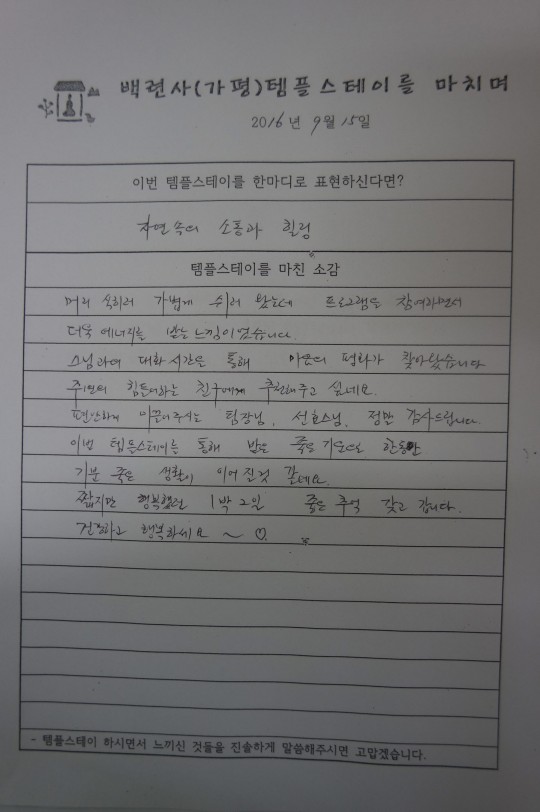 백련사(가평)템플스테이를 마치며
2016년 9월 15일
이번 템플스테이를 한마디로 표현하신다면?
자연속의 소통과 힐링
템플스테이를 마친 소감
머리 식히러 가볍게 쉬러 왔는데 프로그램을 참여하면서
더욱 에너지를 받는 느낌이었습니다.
스님과의 대화시간을 통해 마음의 평화가 찾아왔습니다
주변의 힘들어하는 친구에게 추천해주고 싶네요.
편안하게 이끌어주시는 팀장님, 선효스님, 정말 감사드립니다.
이번 템플스테이를 통해 받은 좋은 기운으로 한동안
기분 좋은 생활이 이어질것 같네요.
짧지만 행복했던 1박2일 좋은 추억 갖고 갑니다.
건강하고 행복하세요 ~ ♡
- 템플스테이 하시면서 느끼신 것들을 진솔하게 말씀해주시면 고맙겠습니다.